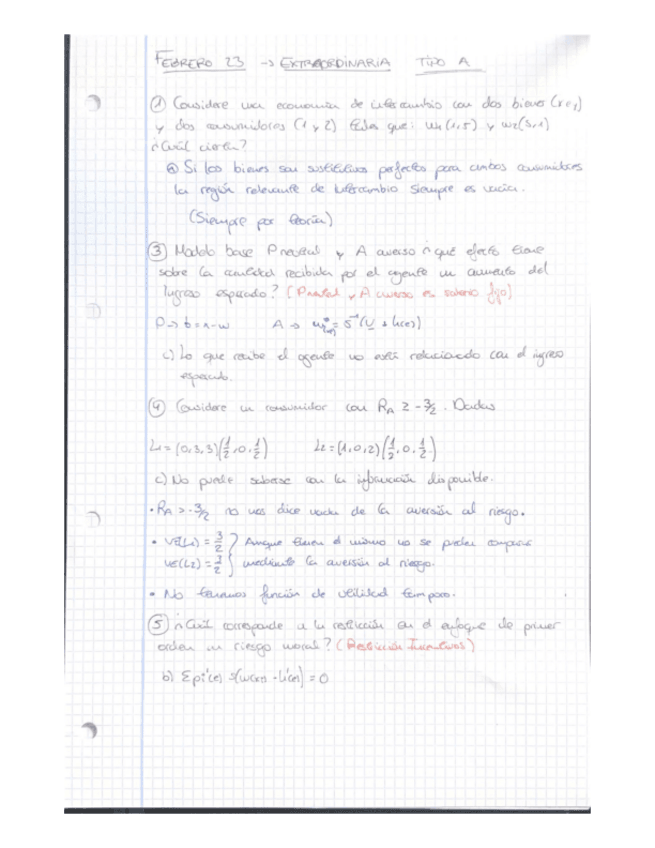 FEBRERO 23 → EXTRAORDINARIA TIPO A
① Considere una economía de intercambio con dos bienes (x e y)
y dos consumidores (1 y 2) tales que: w₁(1,5) y w₂(5,1)
¿Cuál cierta?
ⓐ Si los bienes son sustitutivos perfectos para ambos consumidores
la región relevante de intercambio siempre es vacía.
(Siempre por teoría)
③ Modelo base P neutral y A averso ¿qué efecto tiene
sobre la cantidad recibida por el agente un aumento del
ingreso esperado? (P neutral y A averso es salario fijo)
c) Lo que recibe el agente no está relacionado con el ingreso
esperado.
④ Considere un consumidor con R_A ≥ -3/2. Dadas
L₁ = (0,3,3)(1/2,0,1/2) L₂ = (1,0,2)(1/2,0,1/2)
c) No puede saberse con la información disponible.
• R_A > -3/2 no nos dice nada de la aversión al riesgo.
• VE(L₁) = 3/2 } Aunque tienen el mismo no se pueden comparar
VE(L₂) = 3/2 } mediante la aversión al riesgo.
• No tenemos función de utilidad tampoco.
⑤ ¿Cuál corresponde a la restricción en el enfoque de primer
orden en riesgo moral? (Restricción Incentivos)